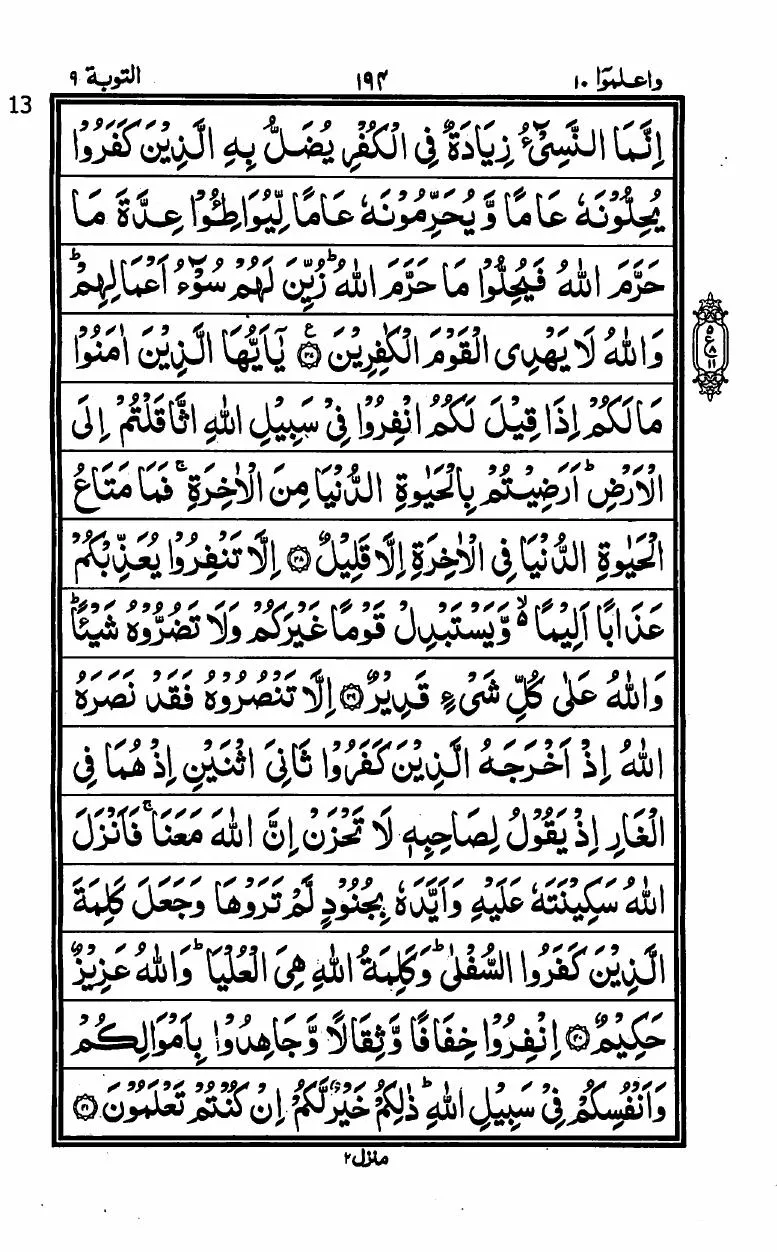 واعلموٓا ۱۰
۱۹۴
التوبة ۹
13
اِنَّمَا النَّسِیْٓءُ زِیَادَةٌ فِی الْكُفْرِ یُضَلُّ بِهِ الَّذِیْنَ كَفَرُوْا
یُحِلُّوْنَهٗ عَامًا وَّیُحَرِّمُوْنَهٗ عَامًا لِّیُوَاطِـُٔوْا عِدَّةَ مَا
حَرَّمَ اللّٰهُ فَیُحِلُّوْا مَا حَرَّمَ اللّٰهُ ؕ زُیِّنَ لَهُمْ سُوْٓءُ اَعْمَالِهِمْ ؕ
وَاللّٰهُ لَا یَهْدِی الْقَوْمَ الْكٰفِرِیْنَ ۳۷ ع یٰۤاَیُّهَا الَّذِیْنَ اٰمَنُوْا
مَا لَكُمْ اِذَا قِیْلَ لَكُمُ انْفِرُوْا فِیْ سَبِیْلِ اللّٰهِ اثَّاقَلْتُمْ اِلَی
الْاَرْضِ ؕ اَرَضِیْتُمْ بِالْحَیٰوةِ الدُّنْیَا مِنَ الْاٰخِرَةِ ۚ فَمَا مَتَاعُ
الْحَیٰوةِ الدُّنْیَا فِی الْاٰخِرَةِ اِلَّا قَلِیْلٌ ۳۸ اِلَّا تَنْفِرُوْا یُعَذِّبْكُمْ
عَذَابًا اَلِیْمًا ۙ۵ وَّیَسْتَبْدِلْ قَوْمًا غَیْرَكُمْ وَلَا تَضُرُّوْهُ شَیْـًٔا ؕ
وَاللّٰهُ عَلٰی كُلِّ شَیْءٍ قَدِیْرٌ ۳۹ اِلَّا تَنْصُرُوْهُ فَقَدْ نَصَرَهُ
اللّٰهُ اِذْ اَخْرَجَهُ الَّذِیْنَ كَفَرُوْا ثَانِیَ اثْنَیْنِ اِذْ هُمَا فِی
الْغَارِ اِذْ یَقُوْلُ لِصَاحِبِهٖ لَا تَحْزَنْ اِنَّ اللّٰهَ مَعَنَا ۚ فَاَنْزَلَ
اللّٰهُ سَكِیْنَتَهٗ عَلَیْهِ وَاَیَّدَهٗ بِجُنُوْدٍ لَّمْ تَرَوْهَا وَجَعَلَ كَلِمَةَ
الَّذِیْنَ كَفَرُوا السُّفْلٰی ؕ وَكَلِمَةُ اللّٰهِ هِیَ الْعُلْیَا ؕ وَاللّٰهُ عَزِیْزٌ
حَكِیْمٌ ۴۰ اِنْفِرُوْا خِفَافًا وَّثِقَالًا وَّجَاهِدُوْا بِاَمْوَالِكُمْ
وَاَنْفُسِكُمْ فِیْ سَبِیْلِ اللّٰهِ ؕ ذٰلِكُمْ خَیْرٌ لَّكُمْ اِنْ كُنْتُمْ تَعْلَمُوْنَ ۴۱
۵
ع ۸
۱۱
منزل ۲